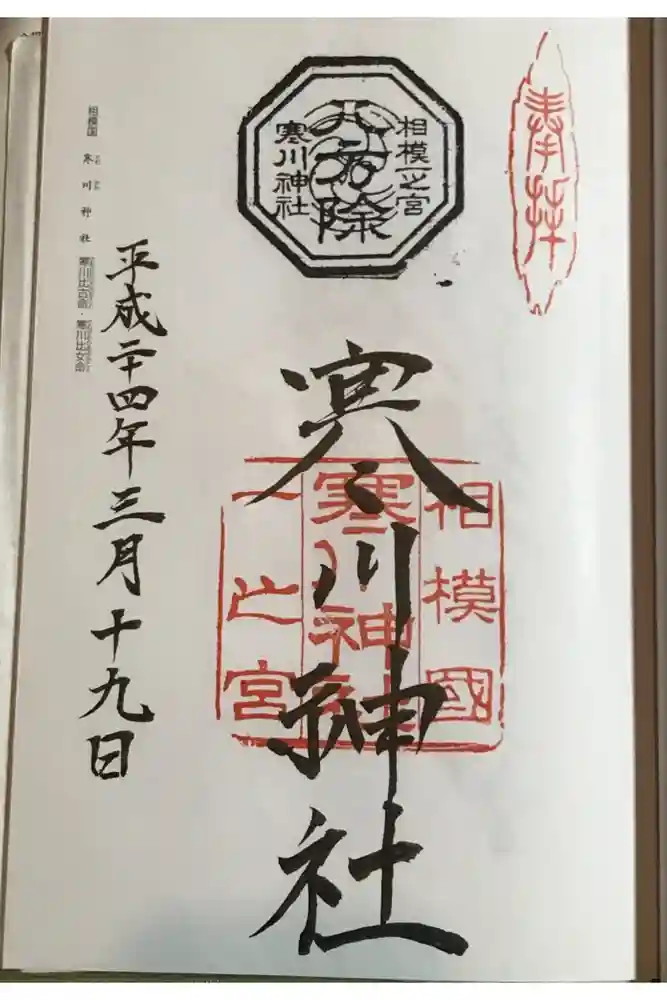 奉拝
相模一之宮
八方除
寒川神社
相模國
寒川神社
一之宮
寒川神社
平成二十四年三月十九日
相模国 寒川神社 寒川比古命・寒川比女命